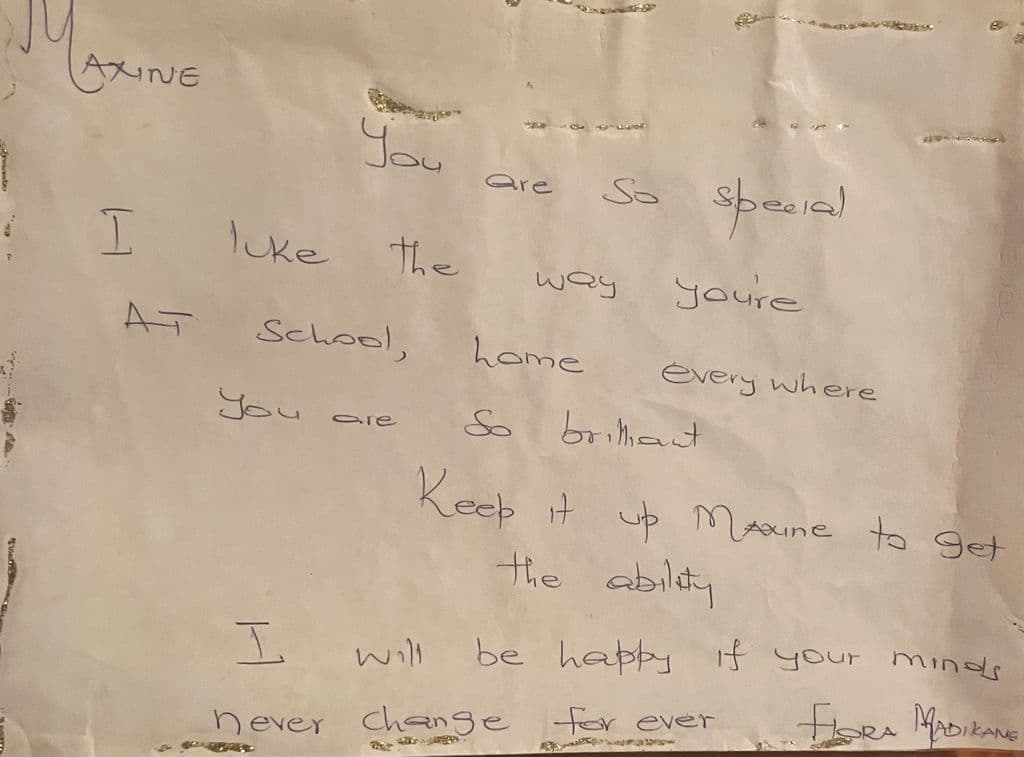 MAXINE
You are so special
I like the way you're
AT School, home every where
You are So brilliant
Keep it up Maxine to get
the ability
I will be happy if your minds
never change for ever FLORA MADIKANE